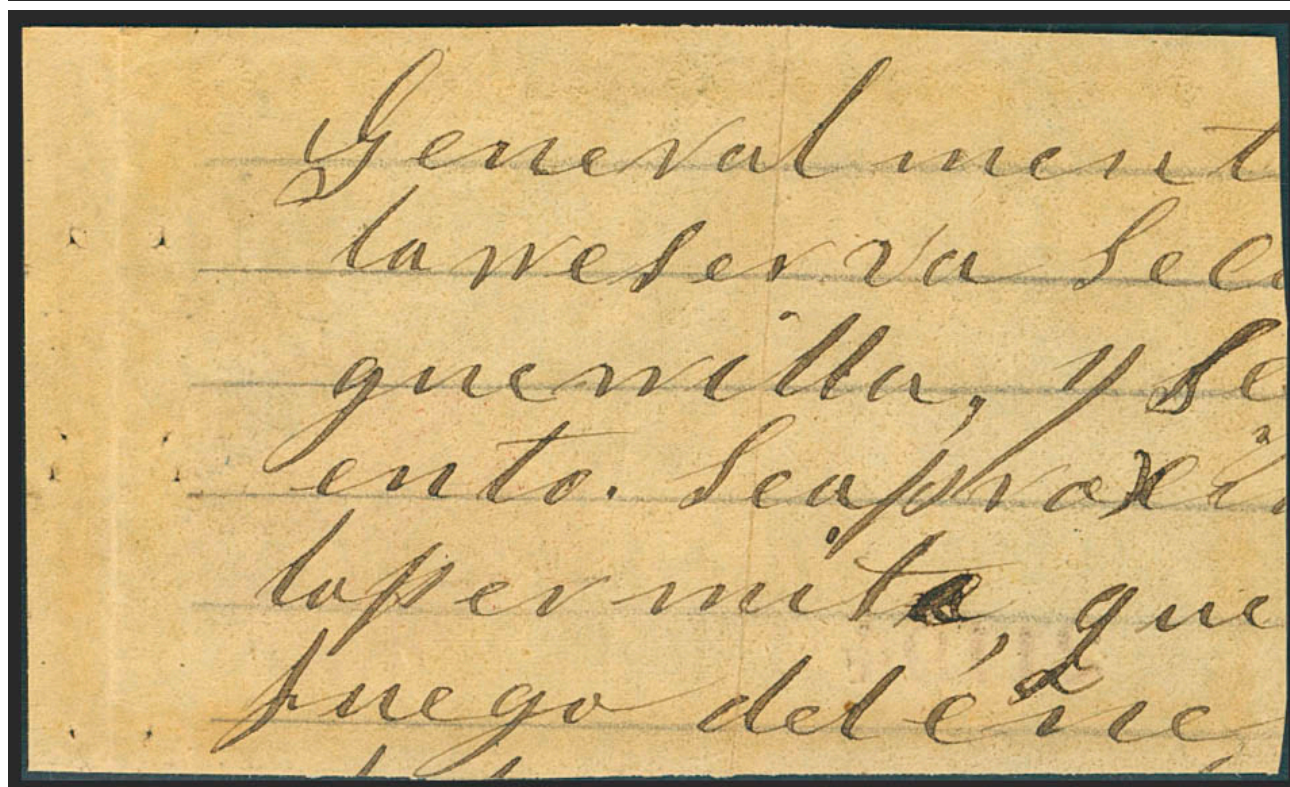 General ment
la rreserva Se
guerrilla, y se
ento. Se aprox
lo permite, que
fuego del éne